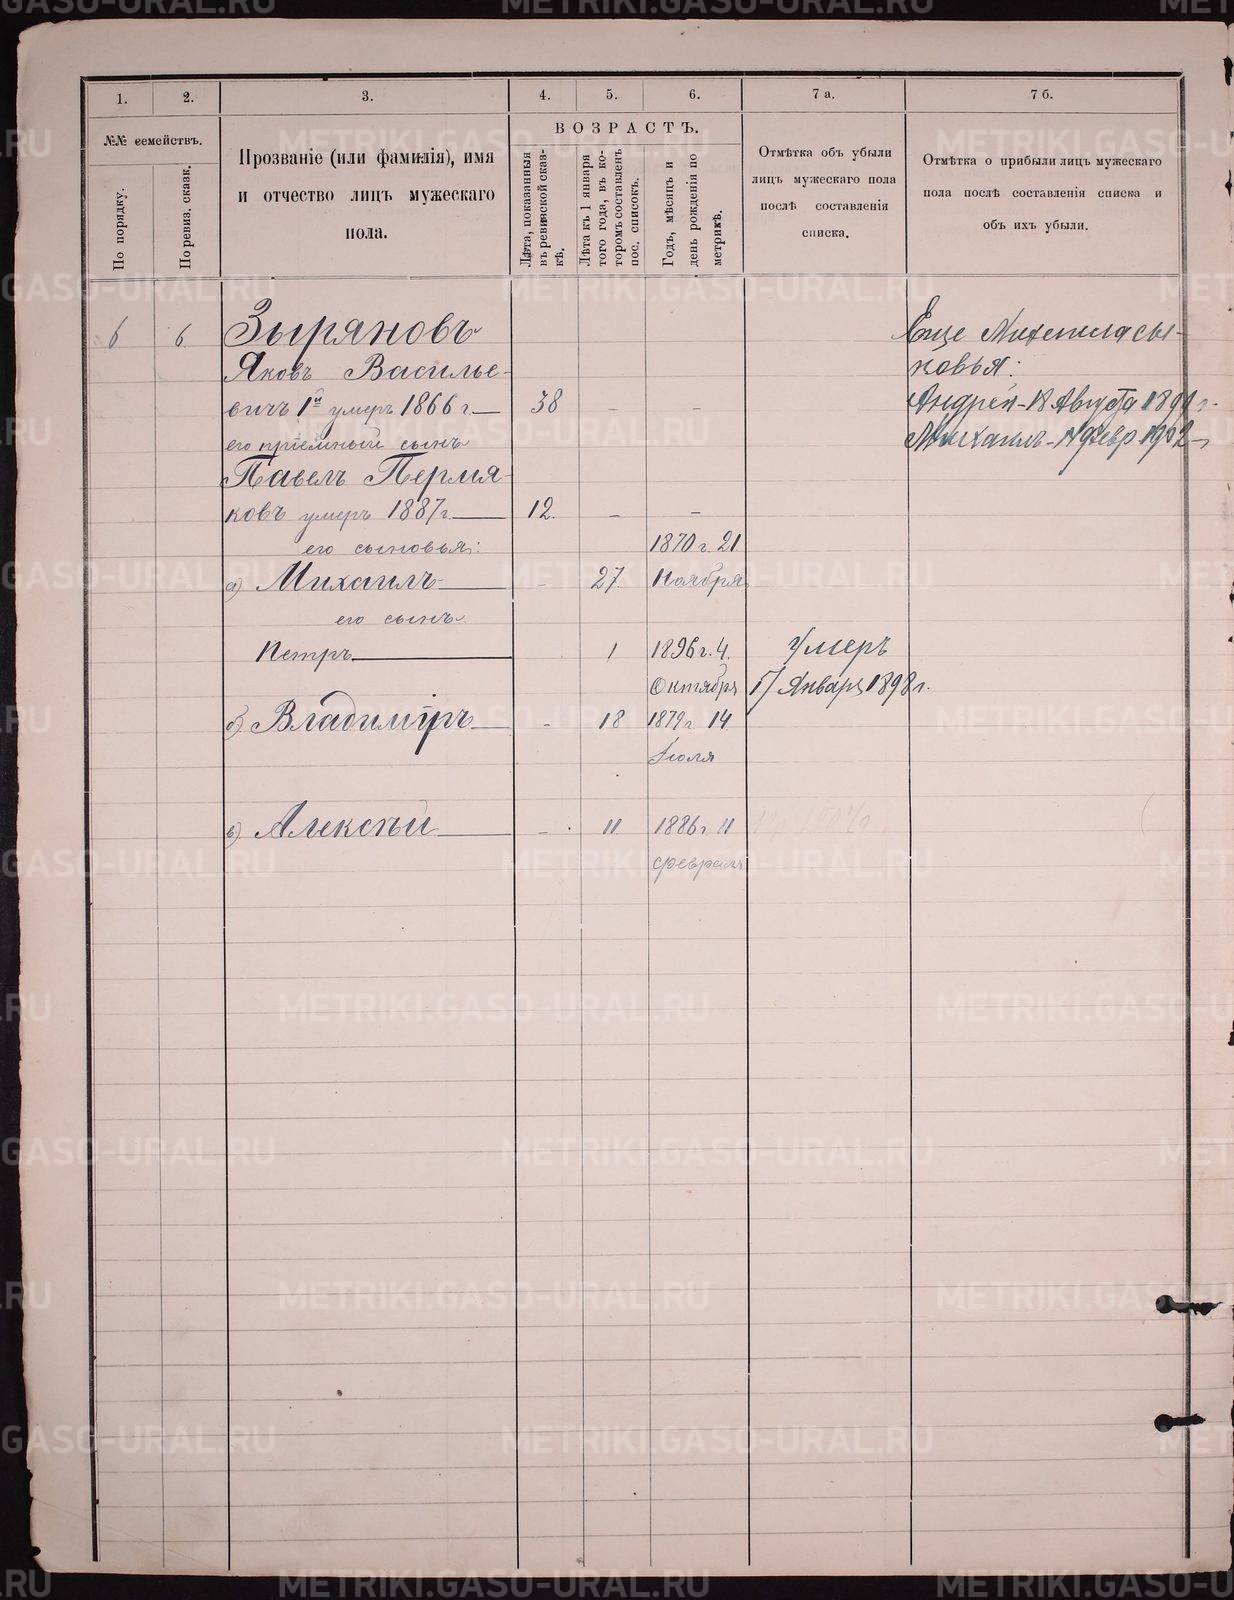 1. 2. 3. 4. 5. 6. 7 а. 7 б.
№№ семействъ.
По порядку.
По ревиз. сказк.
Прозваніе (или фамилія), имя
и отчество лицъ мужескаго
пола.
ВОЗРАСТЪ.
Лѣта, показанныя
въ ревизской сказ-
кѣ.
Лѣта къ 1 января
того года, въ ко-
торомъ составленъ
пос. списокъ.
Годъ, мѣсяцъ и
день рожденія по
метрикѣ.
Отмѣтка объ убыли
лицъ мужескаго пола
послѣ составленія
списка.
Отмѣтка о прибыли лицъ мужескаго
пола послѣ составленія списка и
объ ихъ убыли.
6 6 Зыряновъ
Яковъ Василье-
вичъ 1й умеръ 1866 г. 38 - -
его пріемный сынъ
Павелъ Пермя-
ковъ умеръ 1887 г. 12. - -
его сыновья: 1870 г. 21
а) Михаилъ - 27. Ноября
его сынъ
Петръ 1 1896 г. 4. Умеръ
Октября 17 Января 1898 г.
б) Владиміръ - 18 1879 г. 14
Іюля
в) Алексѣй - 11 1886 г. 11
февраля
Еще Михаила сы-
новья:
Андрей - 18 Августа г.
Михаилъ - февр 1902
METRIKI.GASO-URAL.RU